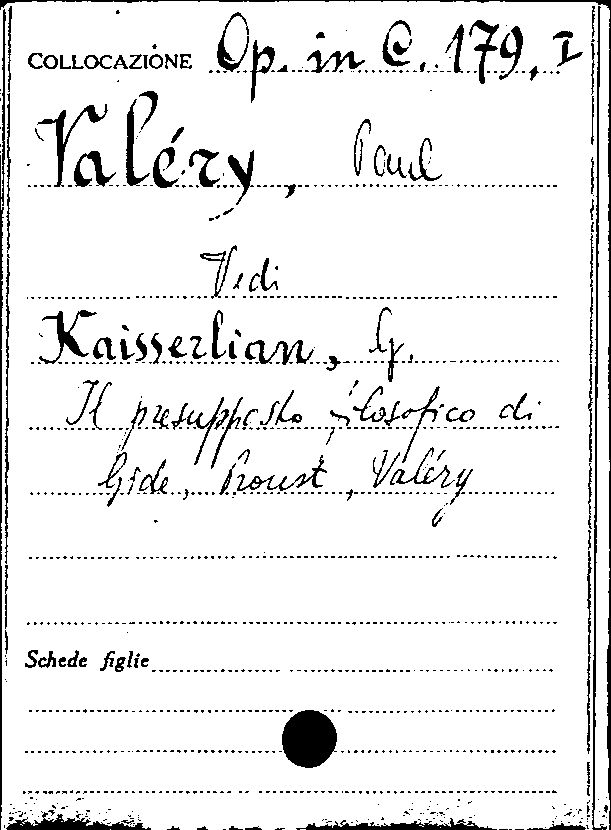 COLLOCAZIONE Op. in C. 179, I
Valéry, Paul
Vedi
Kaisserlian, G.
Il presupposto filosofico di
Gide, Proust, Valéry
Schede figlie